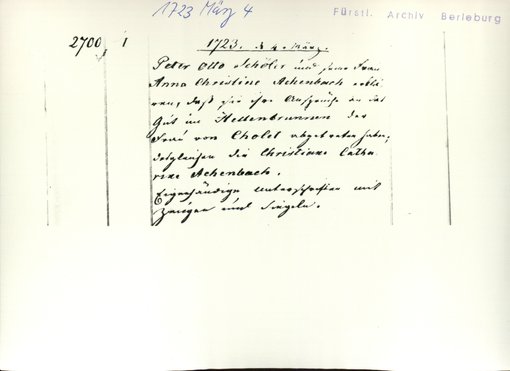 1723 März 4
Fürstl. Archiv Berleburg
2700 1
1723. d 4. März.
Peter Otto Schöler und seine Frau
Anna Christine Achenbach erklä
ren, daß sie ihre Ansprüche an das
Gut im Hellenbrunnen der
Frau von Cholet abgetreten haben,
desgleichen die Christianne Catha
rine Achenbach.
Eigenhändige Unterschriften mit
Zeugen und Siegeln.